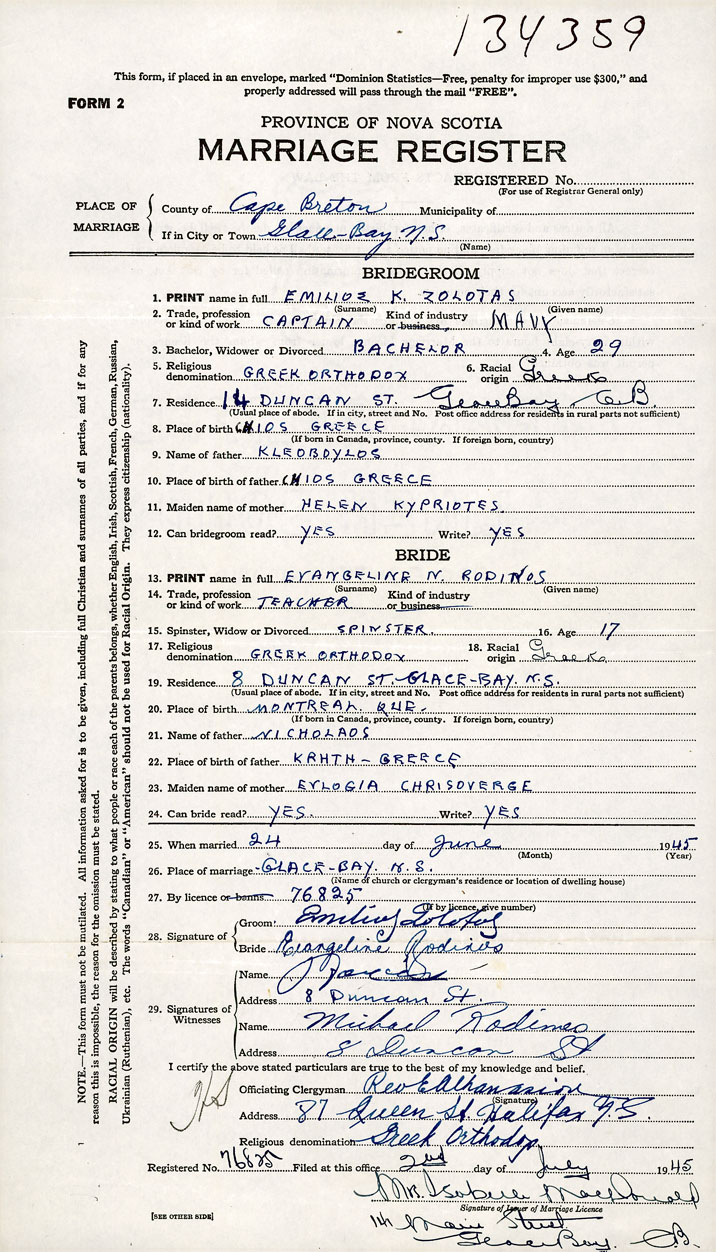 134359
This form, if placed in an envelope, marked "Dominion Statistics—Free, penalty for improper use $300," and
properly addressed will pass through the mail "FREE".
FORM 2
PROVINCE OF NOVA SCOTIA
MARRIAGE REGISTER
REGISTERED No.
(For use of Registrar General only)
PLACE OF MARRIAGE
County of Cape Breton Municipality of
If in City or Town Glace-Bay N.S.
(Name)
BRIDEGROOM
1. PRINT name in full EMILIOS K. ZOLOTAS
(Surname) (Given name)
2. Trade, profession or kind of work CAPTAIN Kind of industry or business NAVY
3. Bachelor, Widower or Divorced BACHELOR 4. Age 29
5. Religious denomination GREEK ORTHODOX 6. Racial origin Greek
7. Residence 14 DUNCAN ST. Glace Bay C.B.
(Usual place of abode. If in city, street and No. Post office address for residents in rural parts not sufficient)
8. Place of birth CHIOS GREECE
(If born in Canada, province, county. If foreign born, country)
9. Name of father KLEOBOYLOS
10. Place of birth of father CHIOS GREECE
11. Maiden name of mother HELEN KYPRIOTES
12. Can bridegroom read? YES Write? YES
BRIDE
13. PRINT name in full EVANGELINE N. RODINOS
(Surname) (Given name)
14. Trade, profession or kind of work TEACHER Kind of industry or business
15. Spinster, Widow or Divorced SPINSTER. 16. Age 17
17. Religious denomination GREEK ORTHODOX 18. Racial origin Greek
19. Residence 8 DUNCAN ST. GLACE-BAY. N.S.
(Usual place of abode. If in city, street and No. Post office address for residents in rural parts not sufficient)
20. Place of birth MONTREAL QUE.
(If born in Canada, province, county. If foreign born, country)
21. Name of father NICHOLAOS
22. Place of birth of father KRHTH - GREECE
23. Maiden name of mother EVLOGIA CHRISOVERGE
24. Can bride read? YES. Write? YES
25. When married 24 day of June 1945
(Month) (Year)
26. Place of marriage GLACE-BAY. N.S.
(Name of church or clergyman's residence or location of dwelling house)
27. By licence or banns 76825
(If by licence, give number)
28. Signature of
Groom Emilios Zolotas
Bride Evangeline Rodinos
29. Signatures of Witnesses
Name
Address 8 Duncan St.
Name Michael Rodinos
Address 8 Duncan St
I certify the above stated particulars are true to the best of my knowledge and belief.
Officiating Clergyman Rev E Athanasiou
(Signature)
Address 87 Queen St Halifax N.S.
Religious denomination Greek Orthodox
Registered No. 76825 Filed at this office 2nd day of July 1945
Mrs. Isabelle MacDonald
Signature of Issuer of Marriage Licence
[SEE OTHER SIDE]
Main Street
Glace Bay. C.B.
NOTE.—This form must not be mutilated. All information asked for is to be given, including full Christian and surnames of all parties, and if for any
reason this is impossible, the reason for the omission must be stated.
RACIAL ORIGIN will be described by stating to what people or race each of the parents belongs, whether English, Irish, Scottish, French, German, Russian,
Ukrainian (Ruthenian), etc. The words "Canadian" or "American" should not be used for Racial Origin. They express citizenship (nationality).